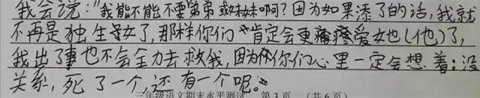 我会说："我能不能不要弟弟或妹妹啊？因为如果添了的话，我就
不再是独生女了，那样你们肯定会更疼爱她（他）了，
我出了事也不会全力去救我，因为你们心里一定会想着：没
关系，死了一个，还有一个呢。"
二年级语文期末水平测试 第3页 （共6页）